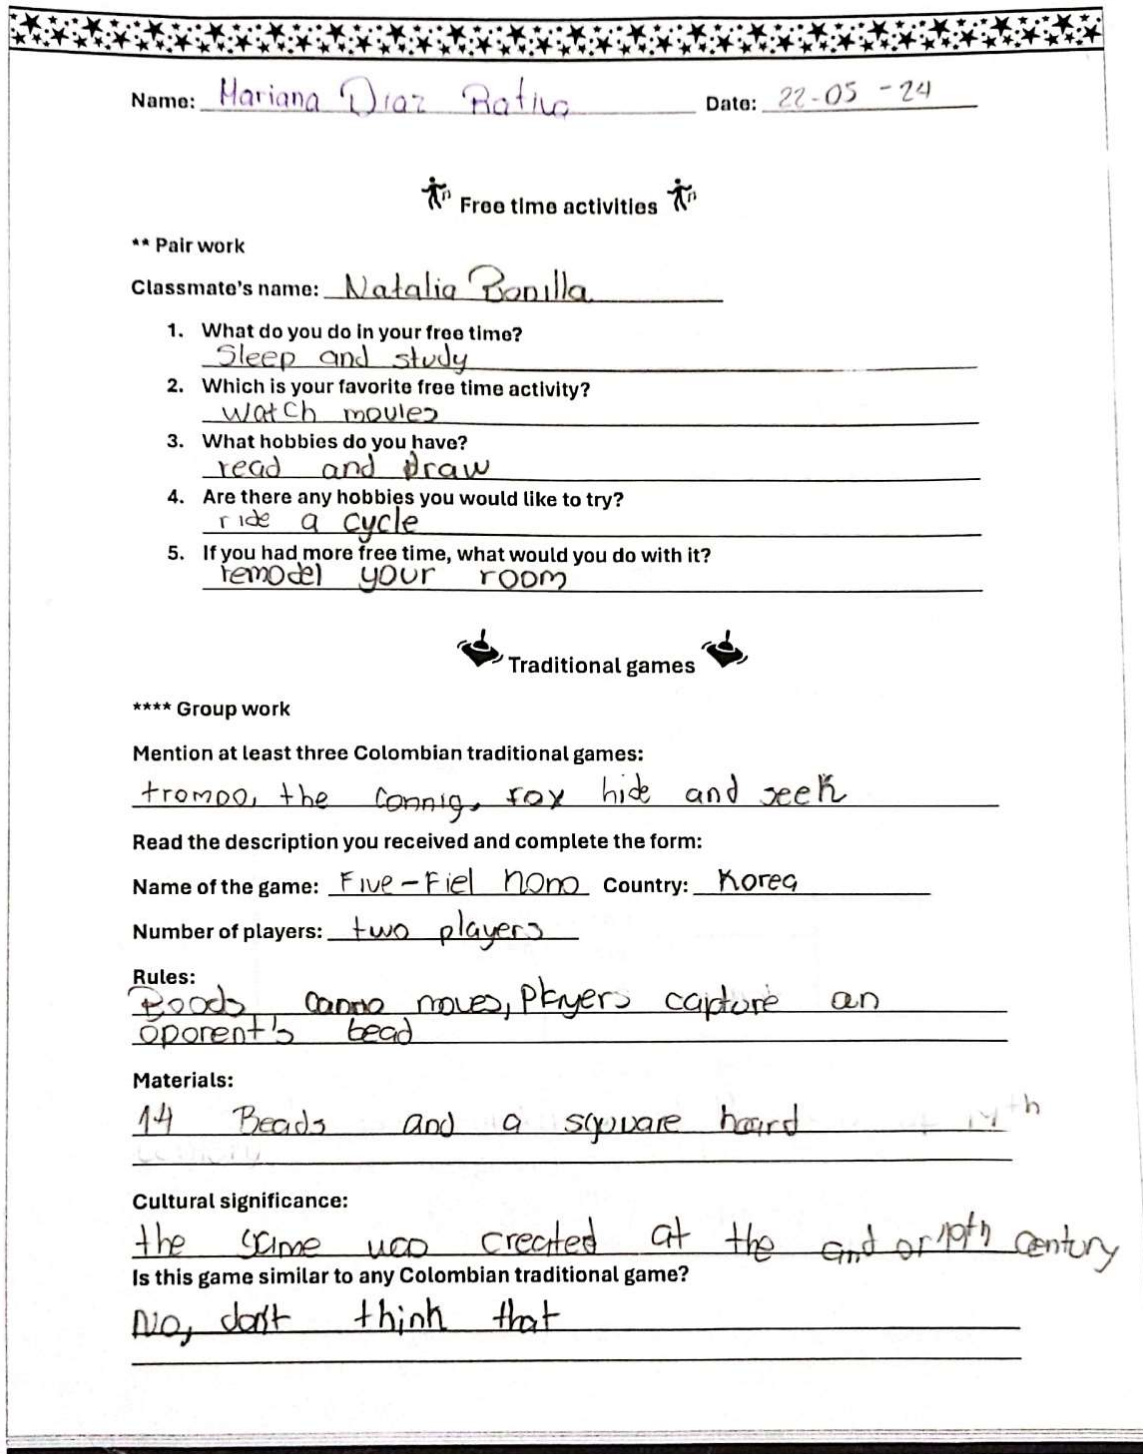 Name: Mariana Diaz Rativa Date: 22-05-24
Free time activities
** Pair work
Classmate's name: Natalia Bonilla
1. What do you do in your free time?
Sleep and study
2. Which is your favorite free time activity?
watch movies
3. What hobbies do you have?
read and draw
4. Are there any hobbies you would like to try?
ride a cycle
5. If you had more free time, what would you do with it?
remodel your room
Traditional games
**** Group work
Mention at least three Colombian traditional games:
trompo, the hide and seek
Read the description you received and complete the form:
Name of the game: Five-Fiel Kono Country: Korea
Number of players: two players
Rules:
moves, Players capture an
oponent's bead
Materials:
14 Beads and a sqyuare board
Cultural significance:
the game was created at the end of 19th century
Is this game similar to any Colombian traditional game?
No, don't think that